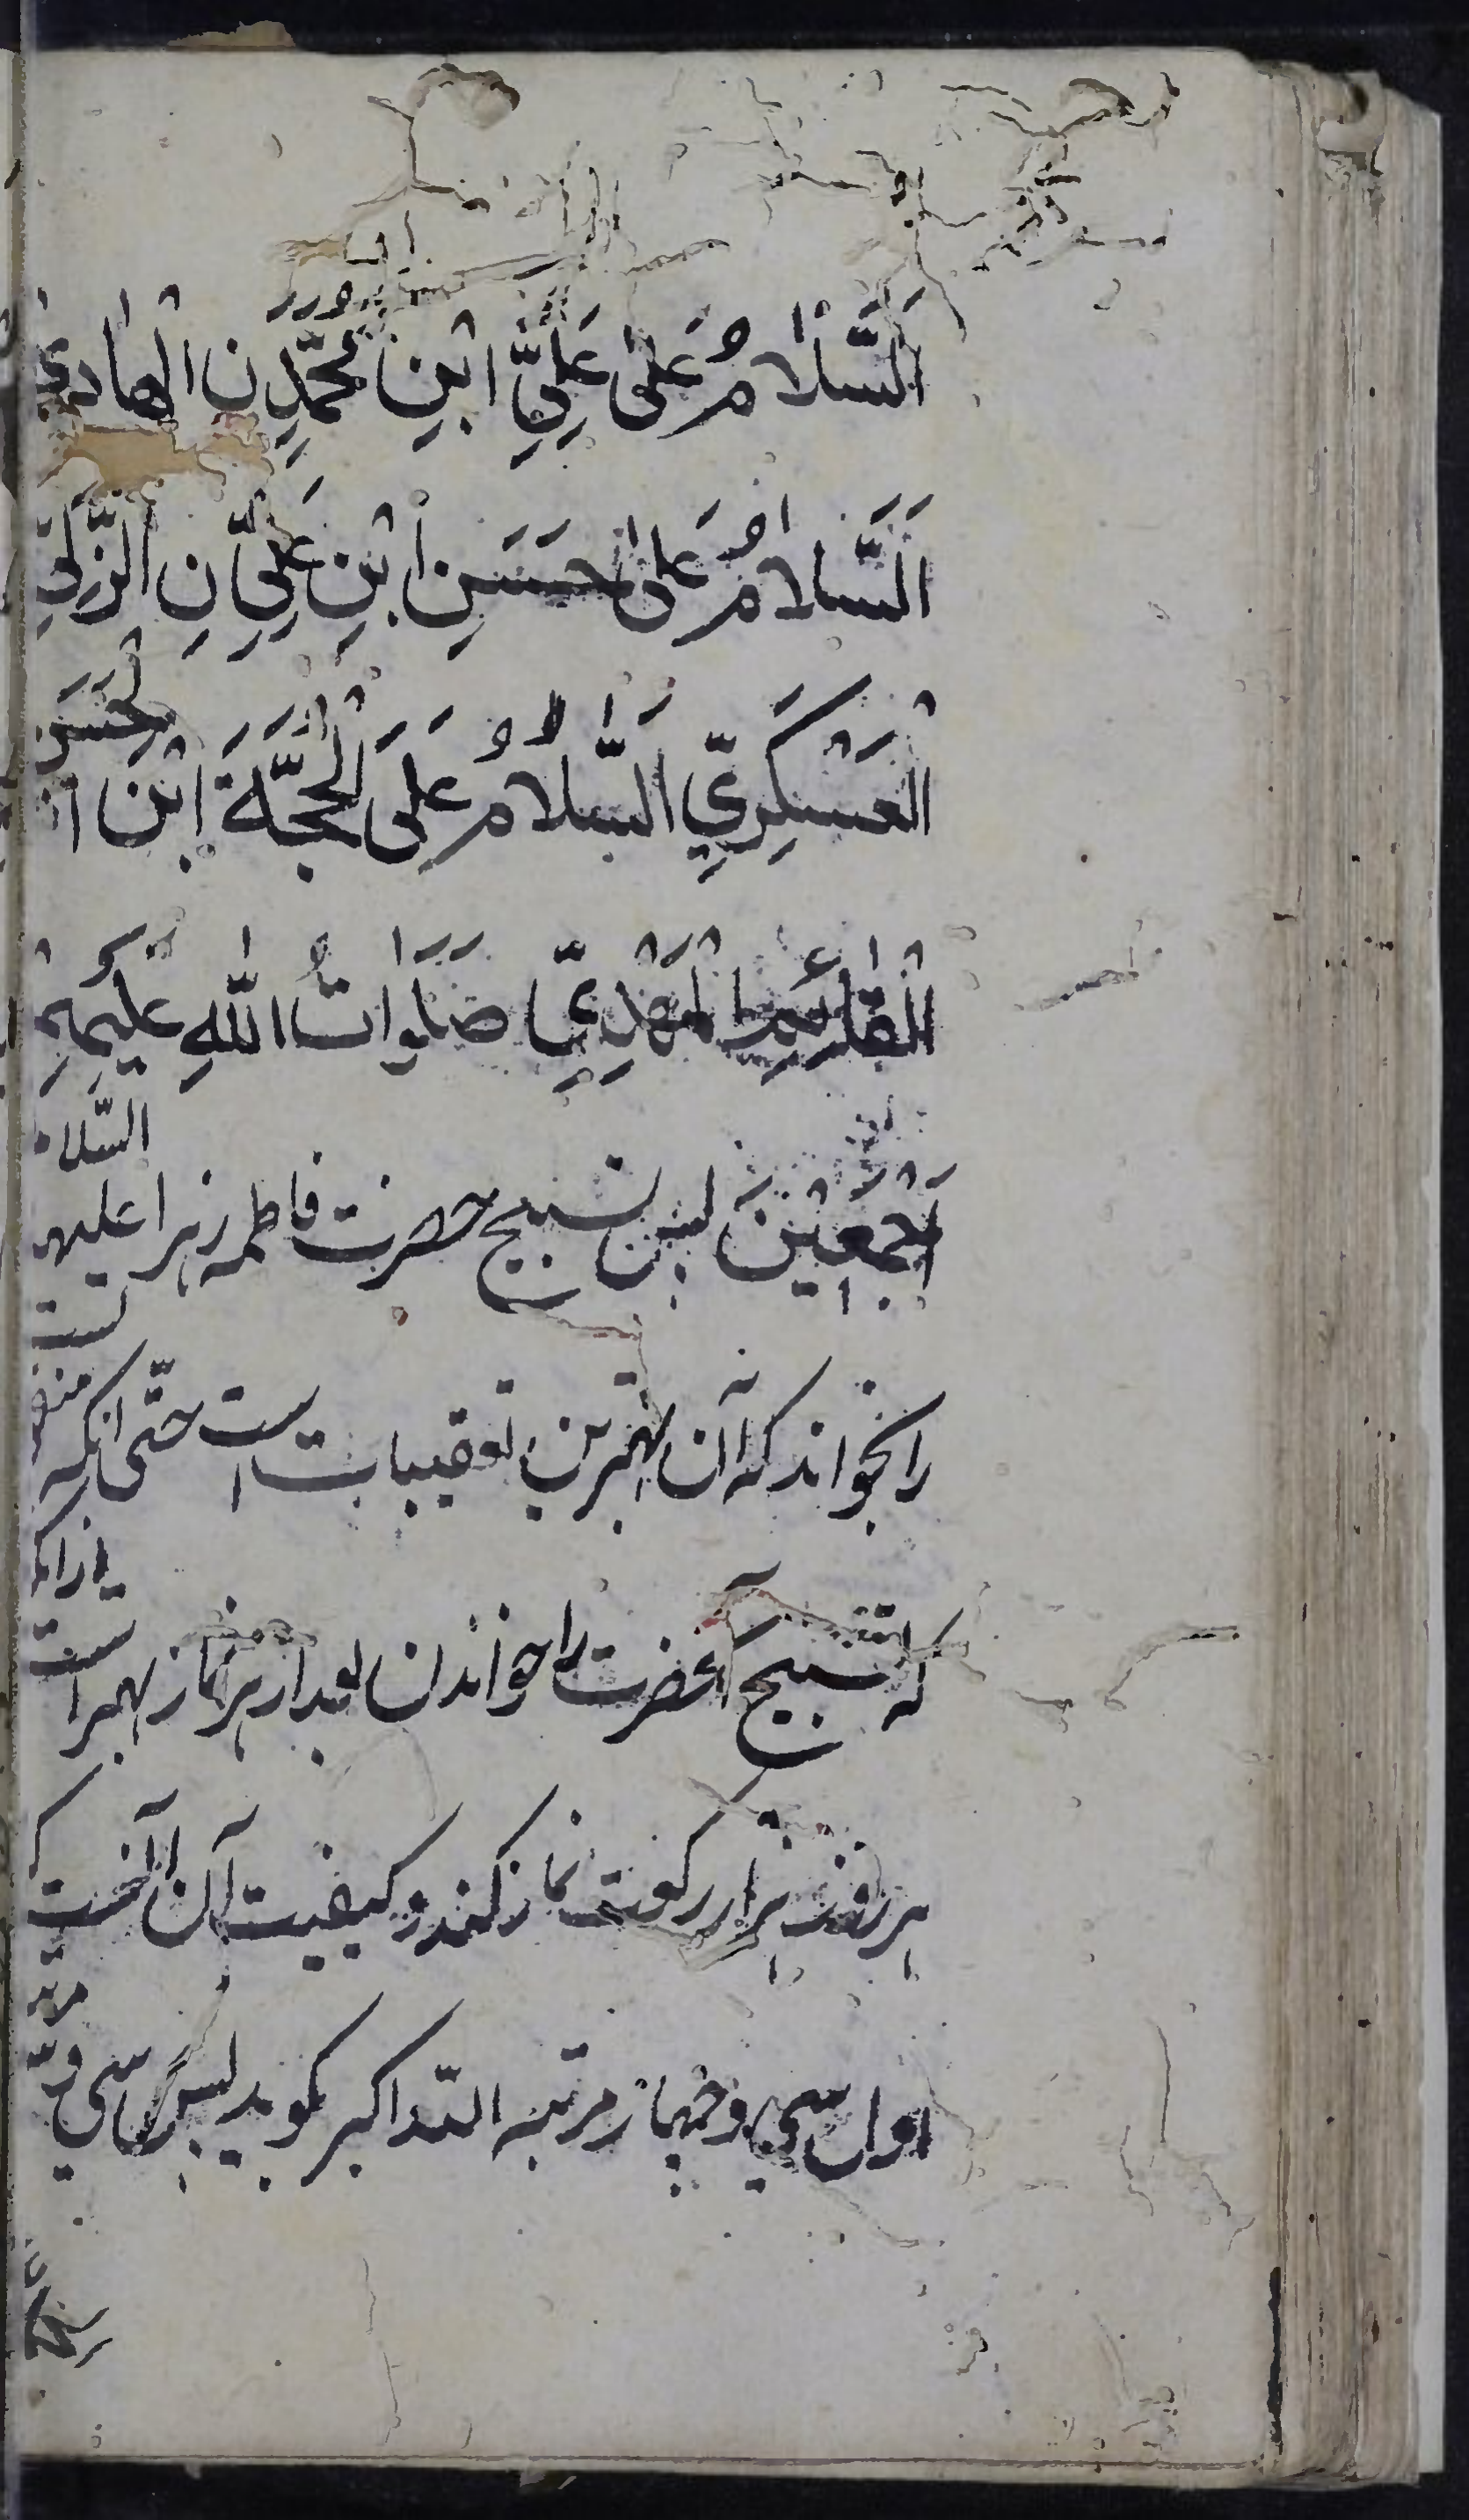 اَلسَّلامُ عَلىٰ عَلِيِّ ابْنِ مُحَمَّدٍ نِ الْهادِي
اَلسَّلامُ عَلىٰ حَسَنِ ابْنِ عَلِيٍّ نِ الزَّكِيِّ
الْعَسْكَرِيِّ السَّلامُ عَلَى الْحُجَّةِ ابْنِ الْحَسَنِ
الْقائِمِ الْمَهْدِيِّ صَلَواتُ اللّٰهِ عَلَيْهِمْ
اَجْمَعِيْنَ پس تسبيح حضرت فاطمه زهرا عليها السّلام
را بخواند كه آن بهترين تعقيبات است حتّى انكه
كه تسبيح آنحضرت را خواندن بعد از هر نماز بهتر است
هر روز هزار ركعت نماز كند و كيفيت آن آنست كه
اول سى و چهار مرتبه اللّه اكبر گويد پس سى و